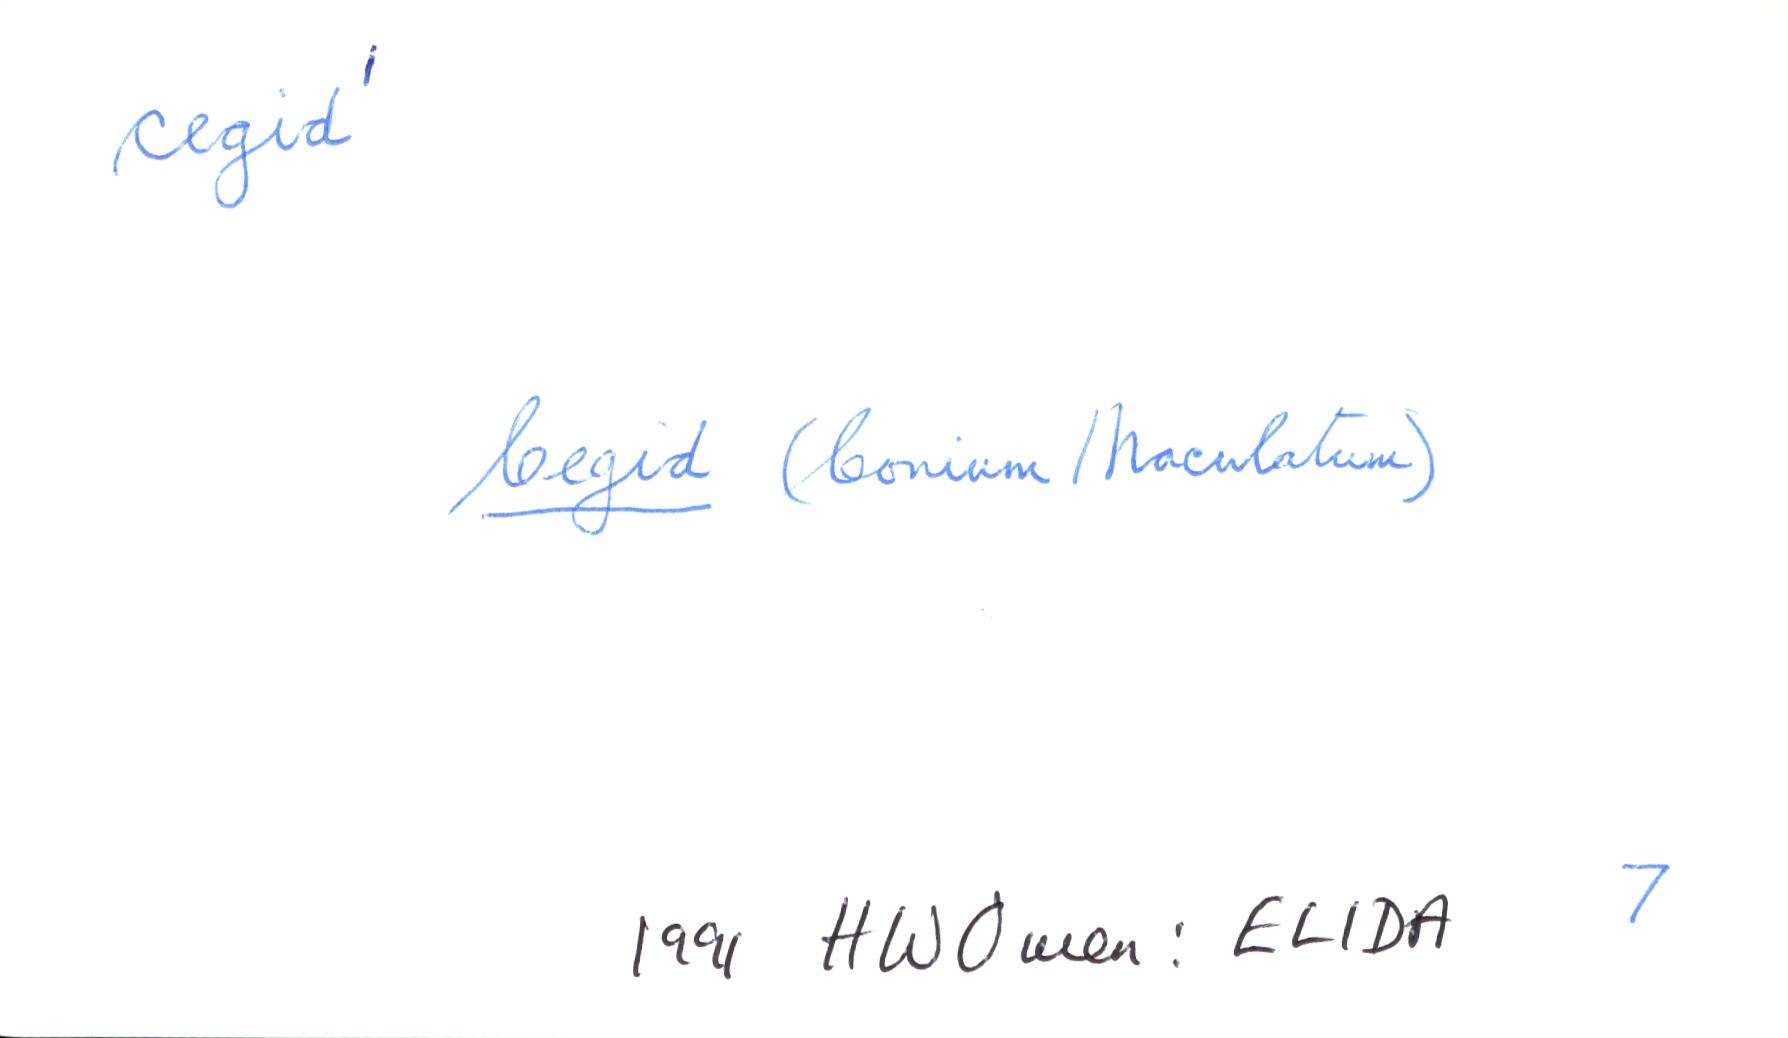 cegid¹
Cegid (Conium Maculatum)
7
1991 HWOwen: ELIDA